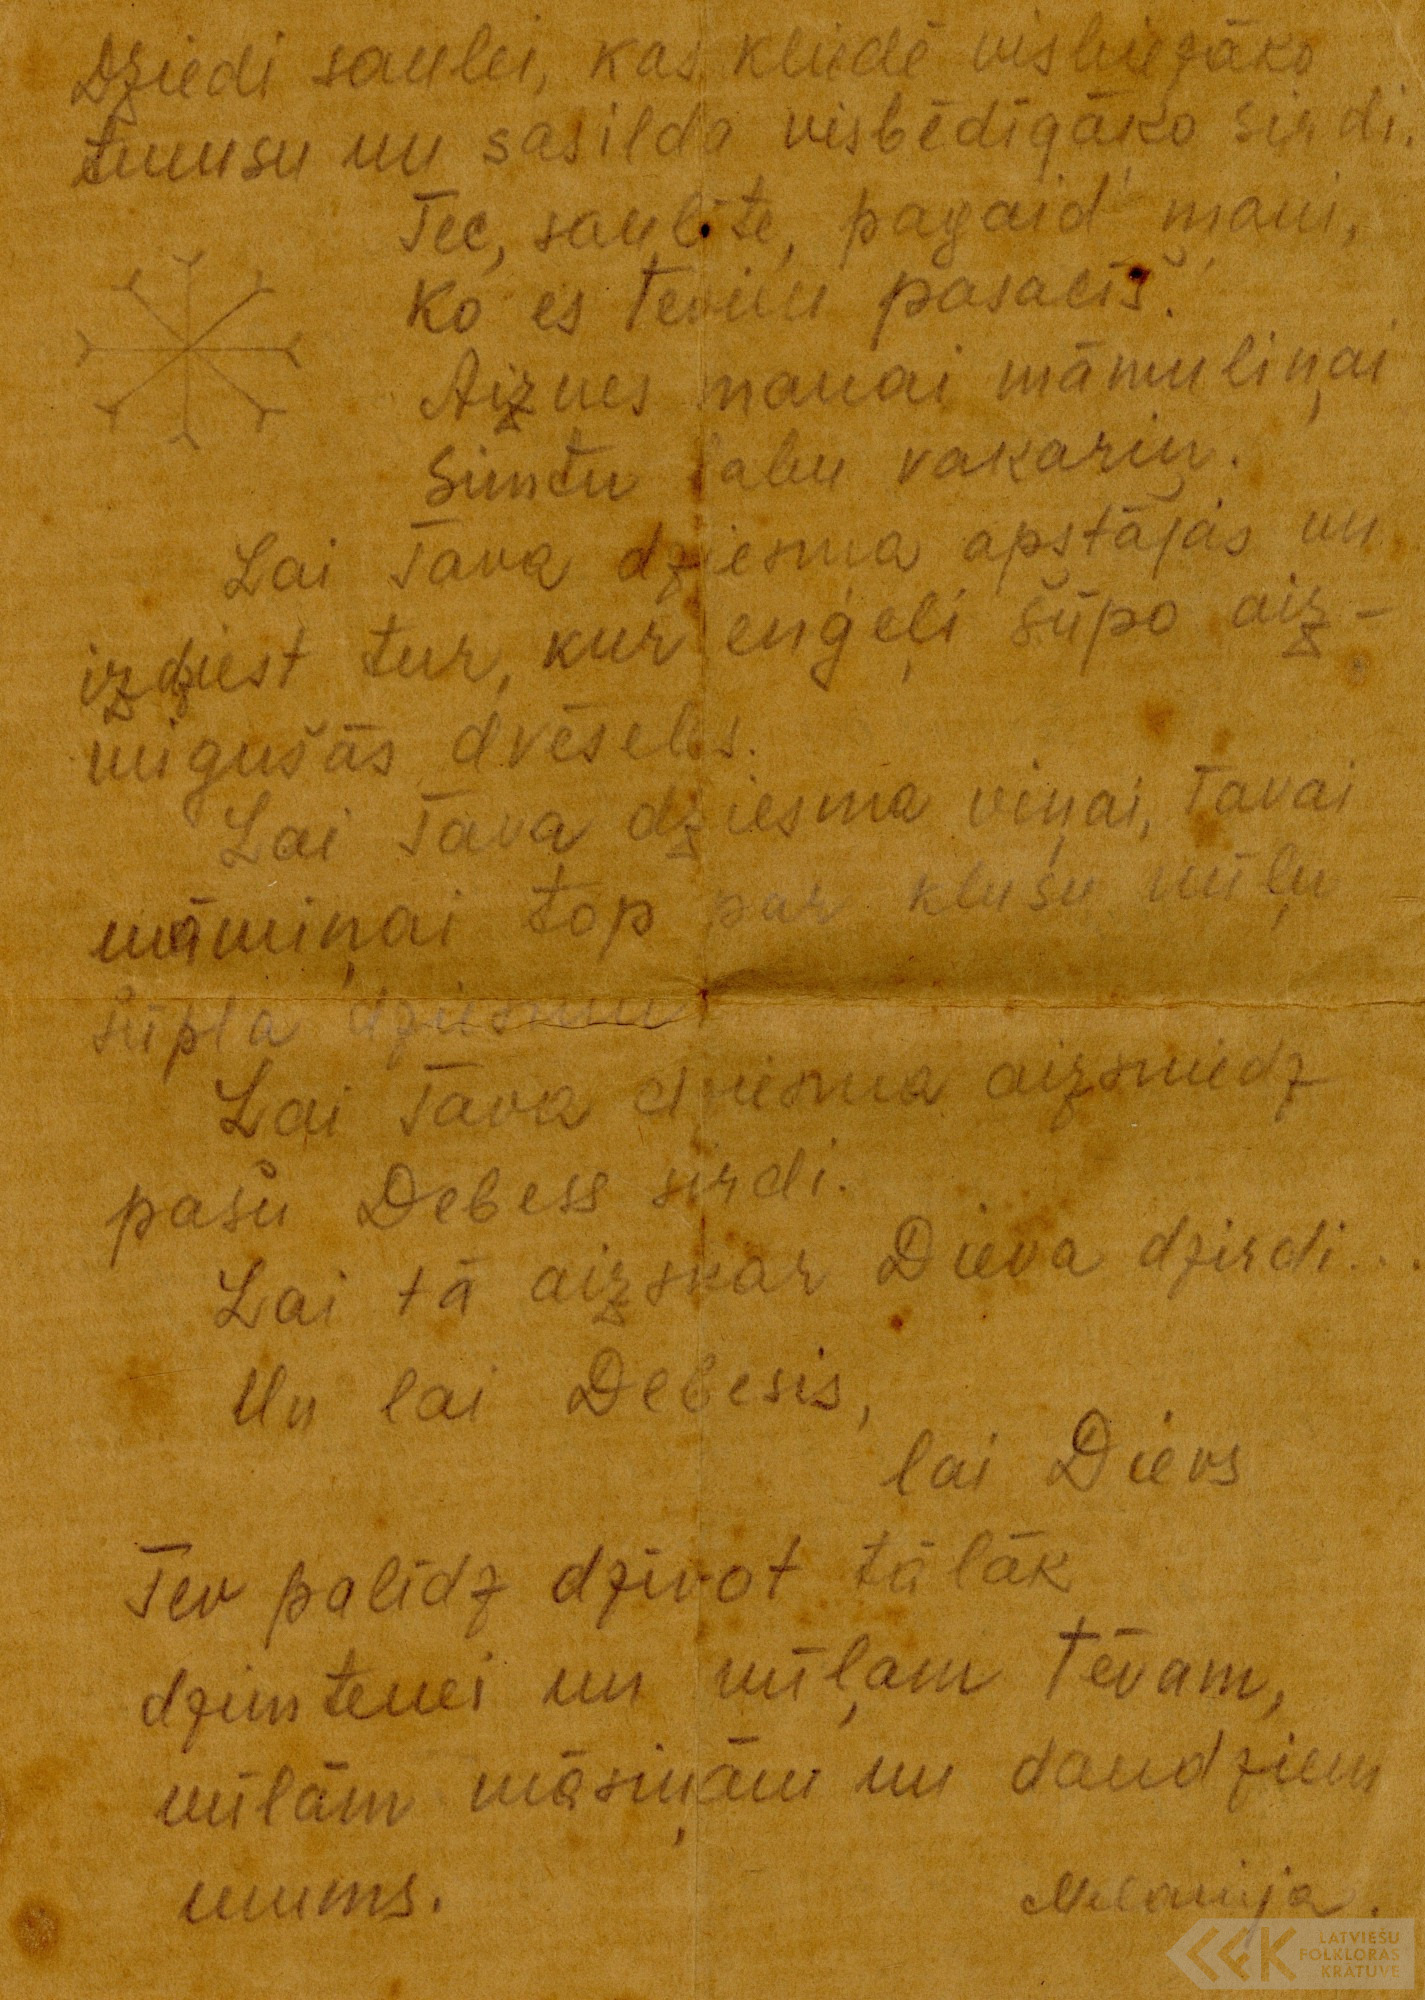 Dziedi saulei, kas kliedē visbiezāko
tumsu un sasilda visbēdīgāko sirdi.
Tec, saulīte, pagaid' mani,
Ko es tevim pasacīš'.
Aiznes manai māmuliņai
Simtu labu vakariņ.
Lai Tava dziesma apstājas un
izdziest tur, kur eņģeļi šūpo aiz-
migušās dvēseles.
Lai Tava dziesma viņai, Tavai
māmiņai top par klusu mīļu
šūpļa dziesmu
Lai Tava dziesma aizsniedz
pašu Debess sirdi.
Lai tā aizskar Dieva dzirdi...
Un lai Debesis,
lai Dievs
Tev palīdz dzīvot tālāk
dzimtenei un mīļam Tēvam,
mīlām māsiņām un daudziem
mums.
Melanija.
LATVIEŠU
FOLKLORAS
KRĀTUVE